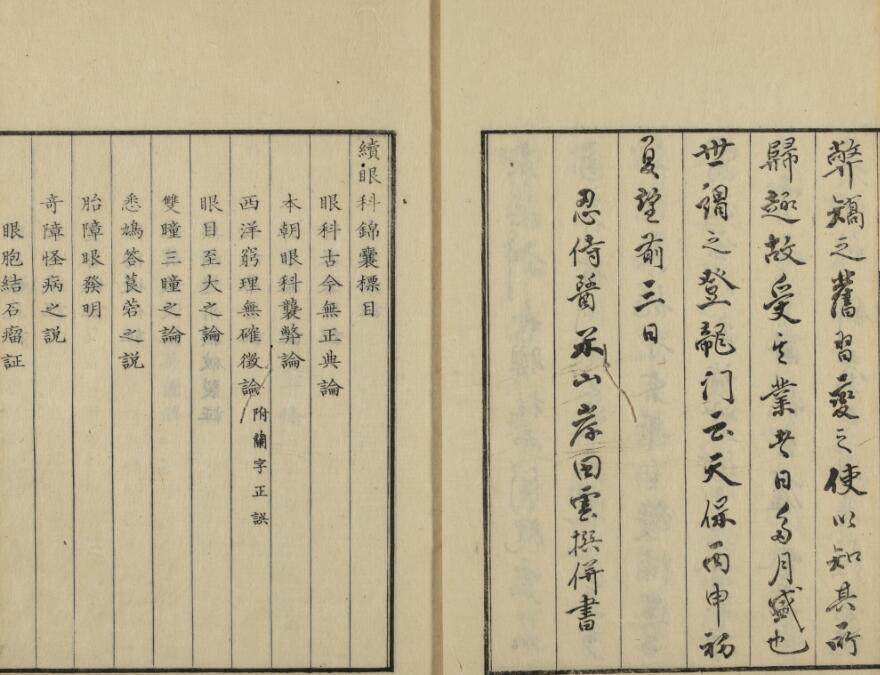 弊矯之舊習變之使以知其所
歸趣故受其業者日多月盛也
世謂之登龍门云天保丙申初
夏望前三日
忍侍醫米山岸田雲撰併書
續眼科錦囊標目
眼科古今無正典論
本朝眼科襲弊論
西洋窮理無確徴論附蘭字正誤
眼目至大之論
雙瞳三瞳之論
悉鳩答莨菪之説
胎障眼發明
奇障怪病之説
眼胞結石瘤証